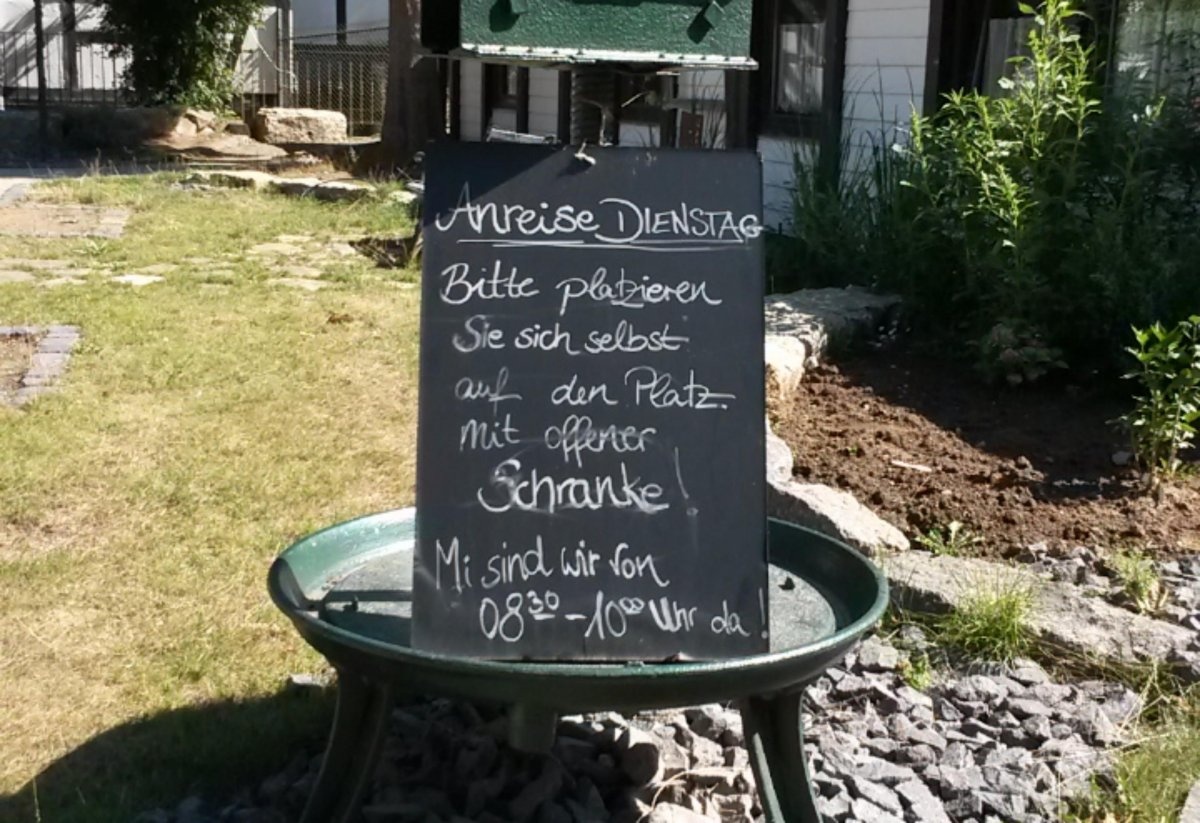 Anreise DIENSTAG
Bitte platzieren
Sie sich selbst
auf den Platz.
mit offener
Schranke!
Mi sind wir von
08³⁰-10⁰⁰ Uhr da!